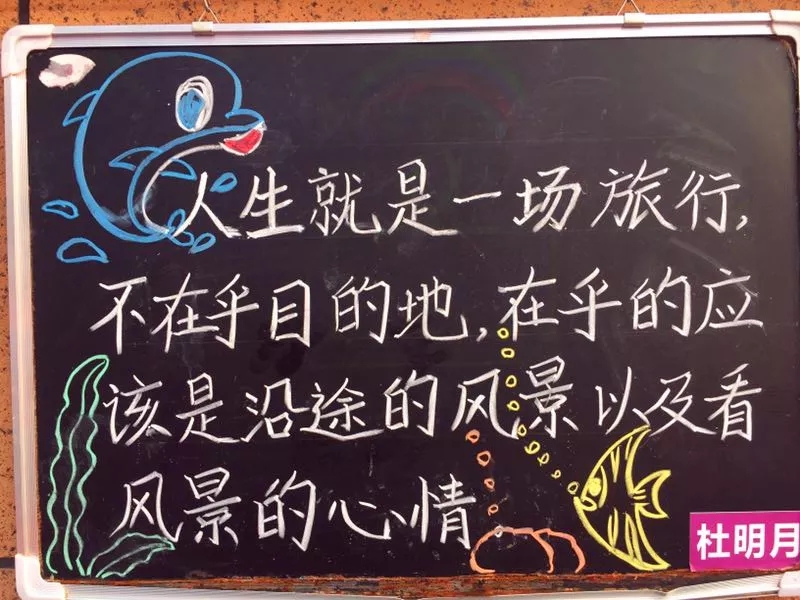 人生就是一场旅行,
不在乎目的地,在乎的应
该是沿途的风景以及看
风景的心情
杜明月